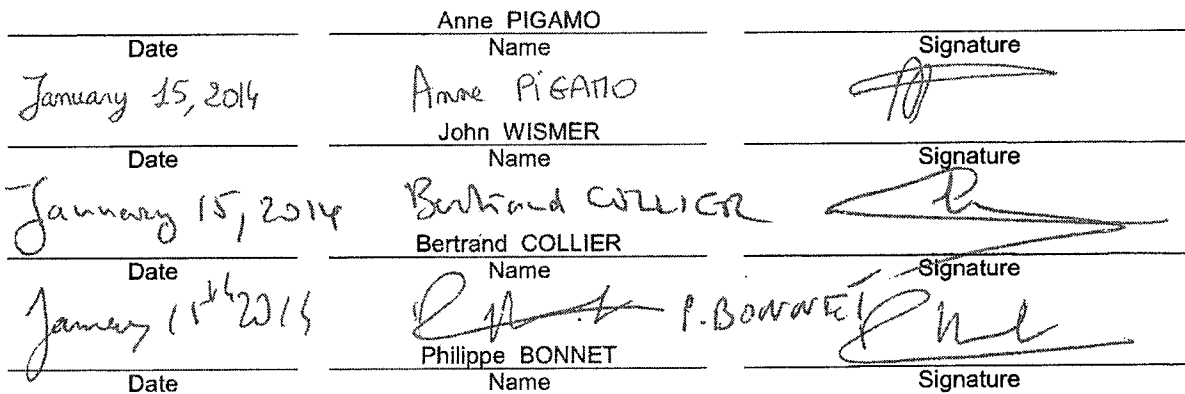 Anne PIGAMO
Date Name Signature
January 15, 2014 Anne PiGAMO
John WISMER
Date Name Signature
January 15, 2014 Bertrand COLLIER
Bertrand COLLIER
Date Name Signature
January 15th 2014 P. BONNET
Philippe BONNET
Date Name Signature